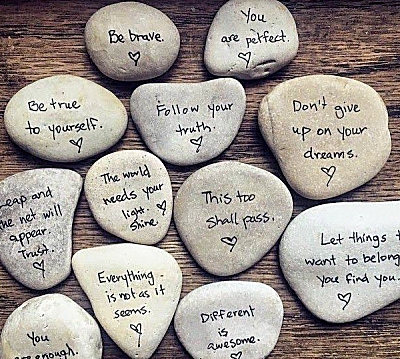 Be brave.
You
are perfect.
Be true
to yourself.
Follow your
truth.
Don't give
up on your
dreams.
Leap and
the net will
appear.
Trust.
The world
needs your
light.
Shine.
This too
shall pass.
Let things t
want to belong
you find you.
Everything
is not as it
seems.
Different
is
awesome.
You
are enough.